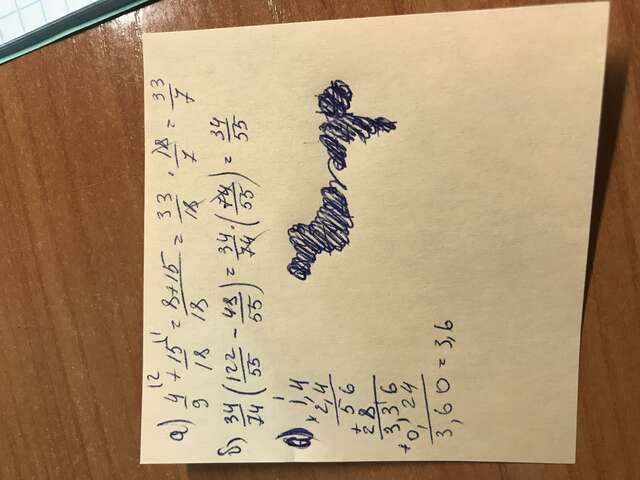 а) 4/9 + 15/18 = 8+15/18 = 33/18 · 18/7 = 33/7
б) 34/74 (122/55 - 48/55) = 34/74 · (74/55) = 34/55
в)
× 1,4
2,4
5 6
+ 2 8
3,3 6
+ 0,24
3,6 0 = 3,6